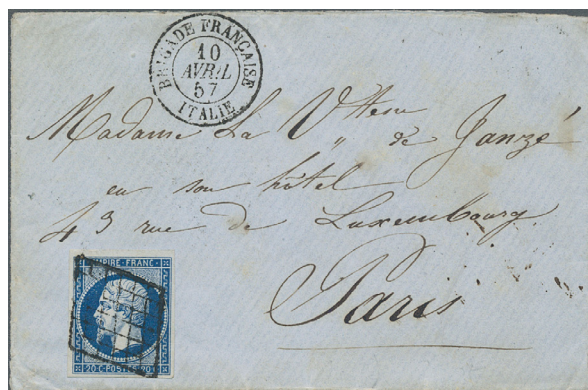 BRIGADE FRANÇAISE
10
AVRIL
57
ITALIE
Madame La Vtesse de Janzé
en son hôtel
43 rue de Luxembourg
Paris
EMPIRE-FRANC-
20·C·POSTES·20·C